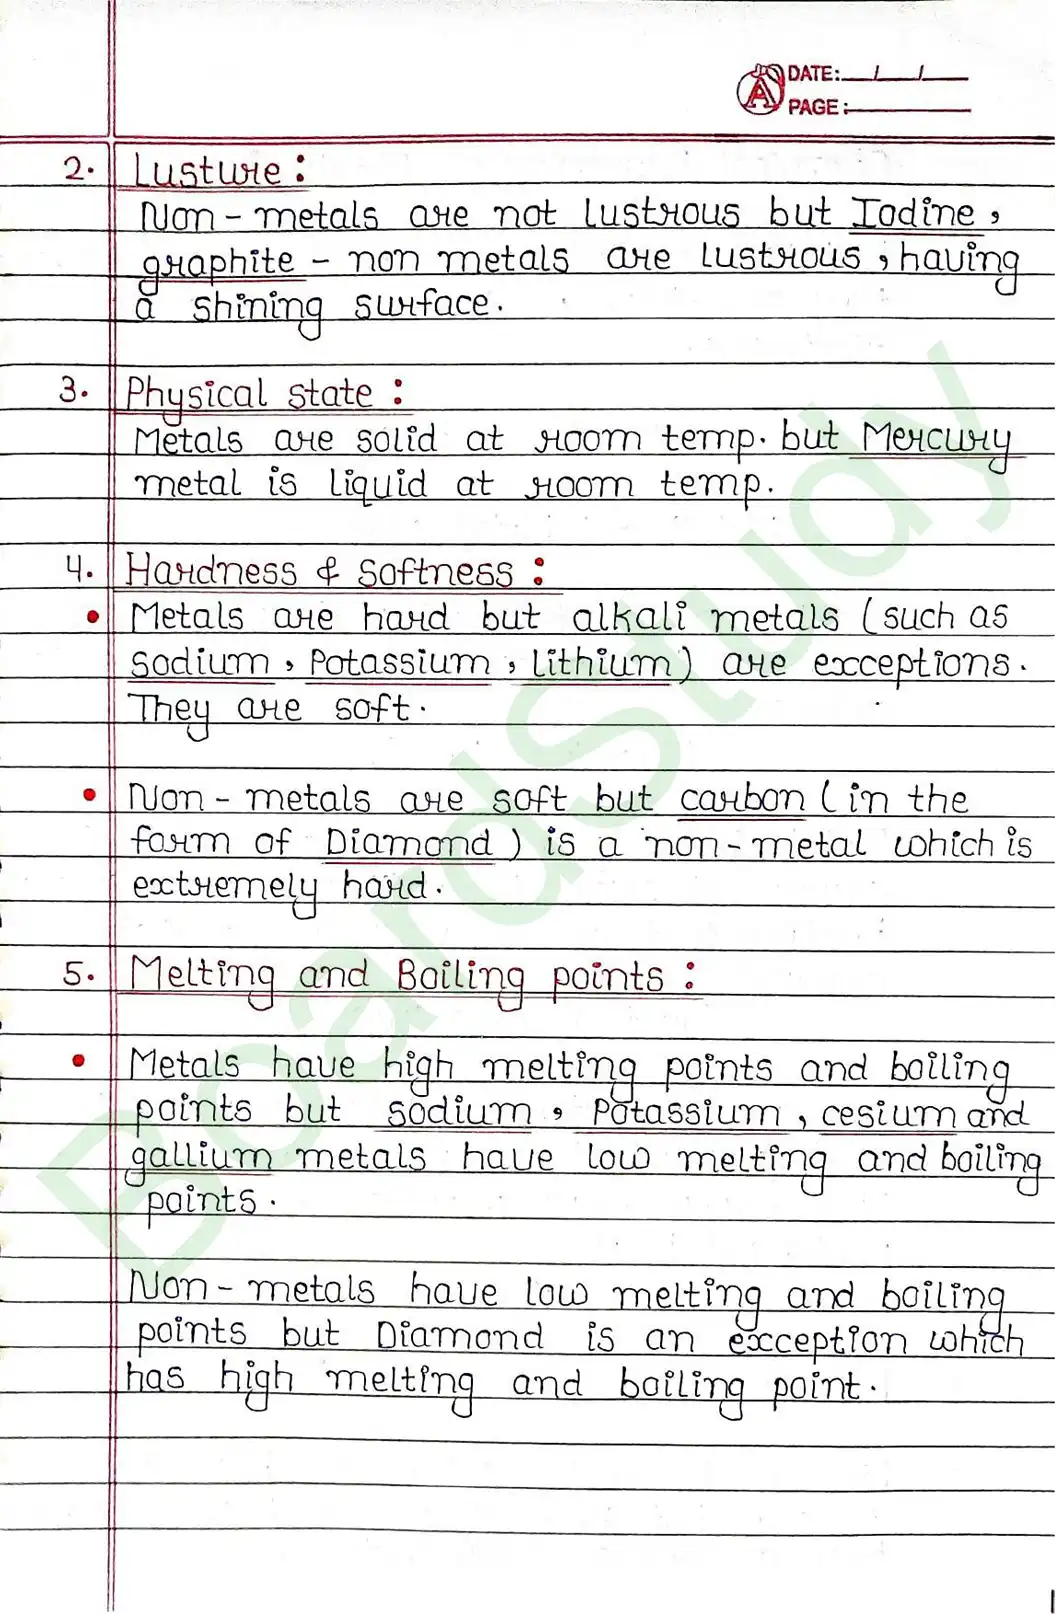 DATE: / /
PAGE:
2. Lusture:
Non-metals are not lustrous but Iodine,
graphite - non metals are lustrous, having
a shining surface.
3. Physical state:
Metals are solid at room temp. but Mercury
metal is liquid at room temp.
4. Hardness & Softness:
• Metals are hard but alkali metals (such as
Sodium, Potassium, Lithium) are exceptions.
They are soft.
• Non-metals are soft but carbon (in the
form of Diamond) is a non-metal which is
extremely hard.
5. Melting and Boiling points:
• Metals have high melting points and boiling
points but sodium, Potassium, cesium and
gallium metals have low melting and boiling
points.
Non-metals have low melting and boiling
points but Diamond is an exception which
has high melting and boiling point.
BoardStudy